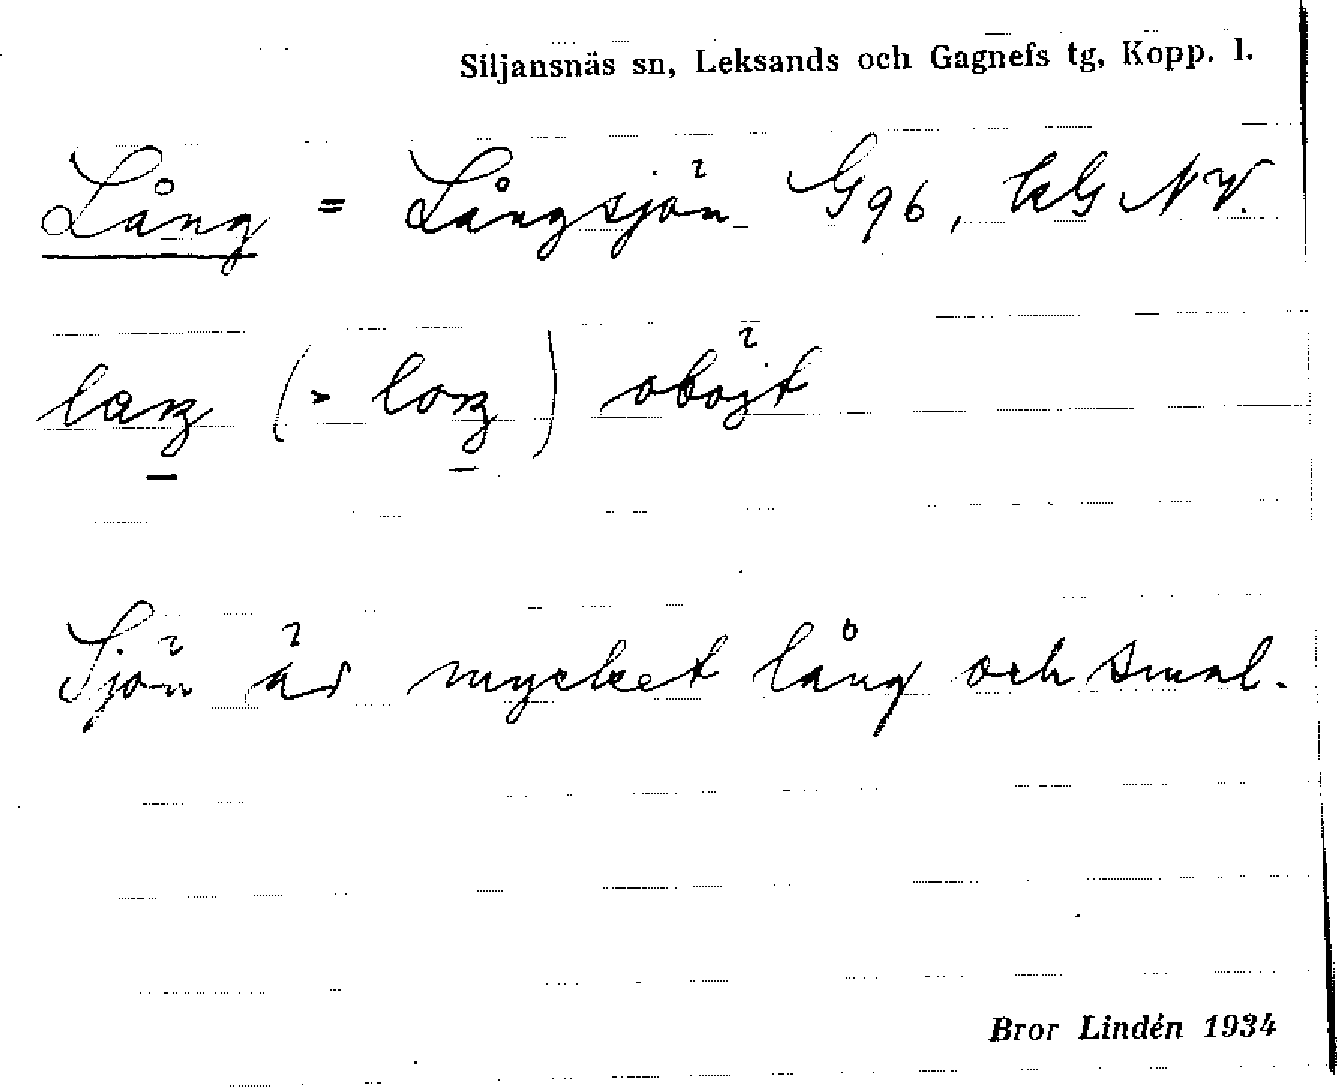 Siljansnäs sn, Leksands och Gagnefs tg, Kopp. l.
Lång = Långsjön G96, hG NV.
obojt
Sjön är mycket lång och smal.
Bror Lindén 1934